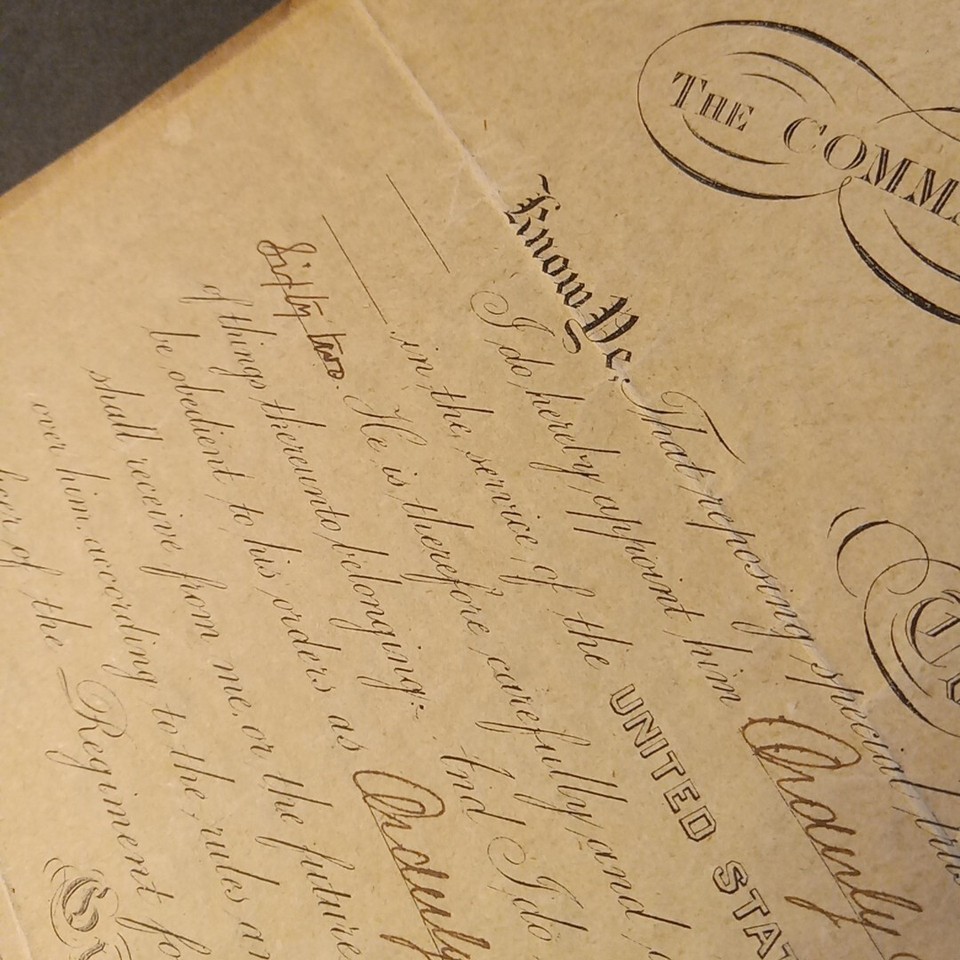 THE COMM
Know Ye, That reposing special trus
I do hereby appoint him Orderly
in the service of the UNITED STAT
Sixty two. He is therefore carefully and
of things thereunto belonging. And I do
be obedient to his orders as Orderly
shall receive from me, or the future
over him according to the rules an
of the Regiment fo